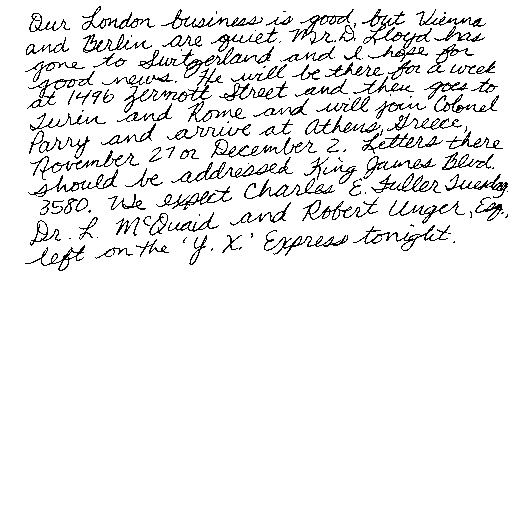 Our London business is good, but Vienna
and Berlin are quiet. Mr. D. Lloyd has
gone to Switzerland and I hope for
good news. He will be there for a week
at 1496 Zermott Street and then goes to
Turin and Rome and will join Colonel
Parry and arrive at Athens, Greece,
November 27 or December 2. Letters there
should be addressed King James Blvd.
3580. We expect Charles E. Fuller Tuesday.
Dr. L. McQuaid and Robert Unger, Esq.,
left on the 'Y. X.' Express tonight.